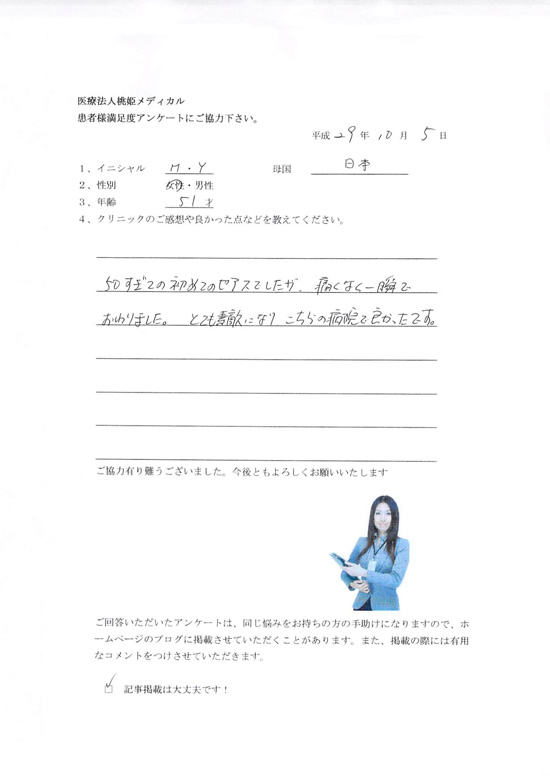 医療法人桃姫メディカル
患者様満足度アンケートにご協力下さい。
平成 29 年 10 月 5 日
1、イニシャル M・Y 母国 日本
2、性別 女性・男性
3、年齢 51 才
4、クリニックのご感想や良かった点などを教えてください。
50すぎての初めてのピアスでしたが、痛くなく一瞬で
おわりました。 とても素敵になり こちらの病院で良かったです。
ご協力有り難うございました。今後ともよろしくお願いいたします
ご回答いただいたアンケートは、同じ悩みをお持ちの方の手助けになりますので、ホ
ームページのブログに掲載させていただくことがあります。また、掲載の際には有用
なコメントをつけさせていただきます。
記事掲載は大丈夫です！